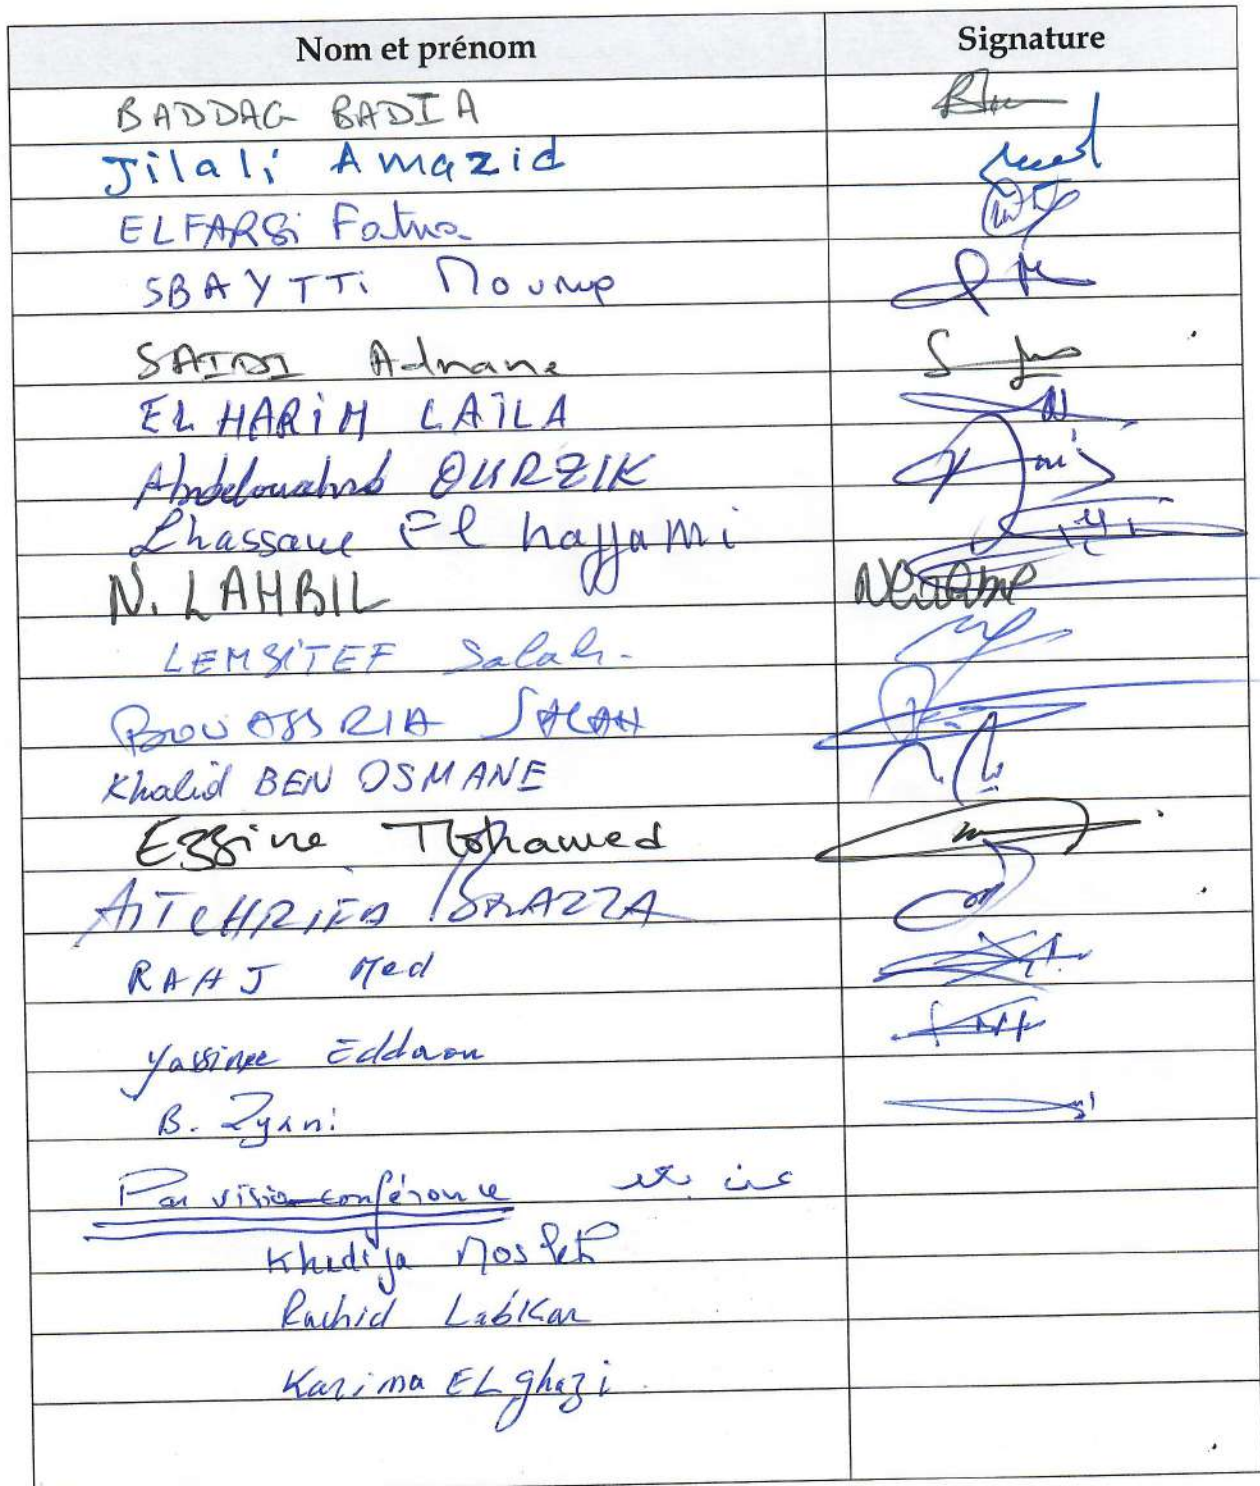 Nom et prénom Signature
BADDAG BADIA
Jilali Amazid
ELFARSi Fatna
SBAYTTi
SAIDI Adnane
EL HARiM LAÏLA
Abdelouahab OURZIK
Lhassane El hajjami
N. LAHBIL
LEMSiTEF Salah.
BOUASSRIA SALAH
Khalid BEN OSMANE
Ezzine Mohamed
AiTCHRiFA
RAHJ Med
Yassine
B. Zyani
Par visio-conférence عن بعد
Khadija
Rachid Labkar
Karima EL ghazi